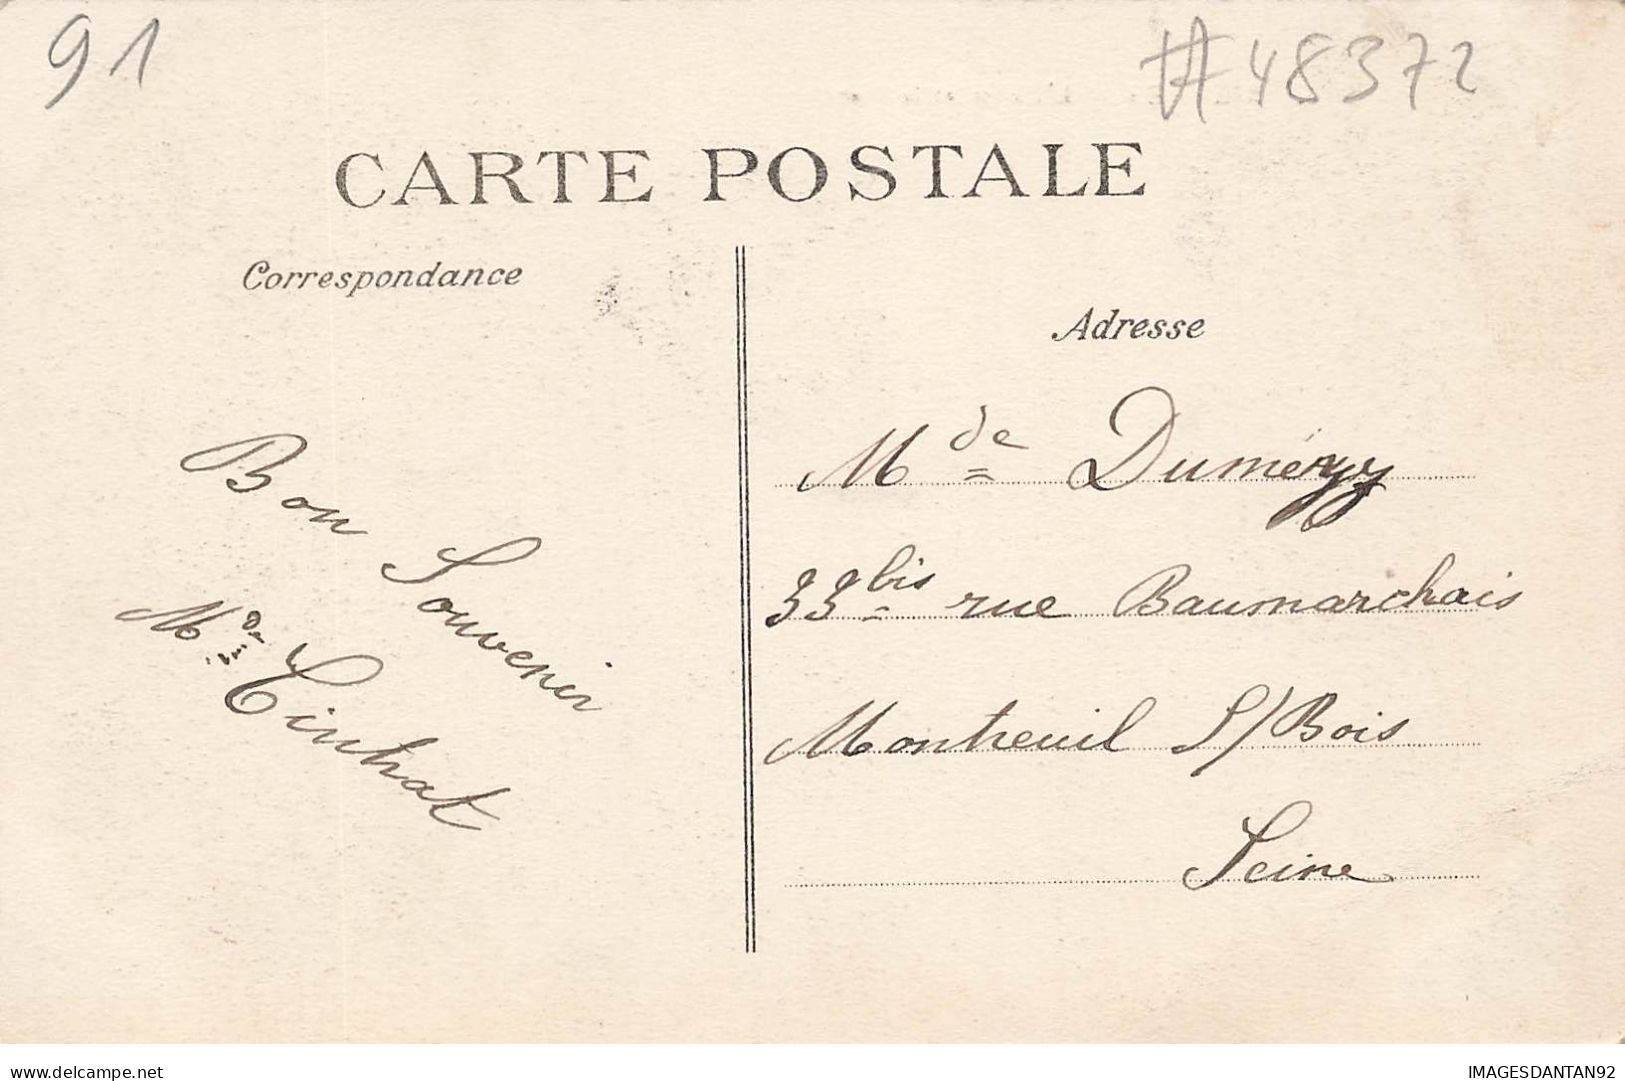 91
#48372
CARTE POSTALE
Correspondance
Adresse
Bon Souvenir
Mde
Mde Duméry
33bis rue Baumarchais
Montreuil S/Bois
Seine
www.delcampe.net
IMAGESDANTAN92